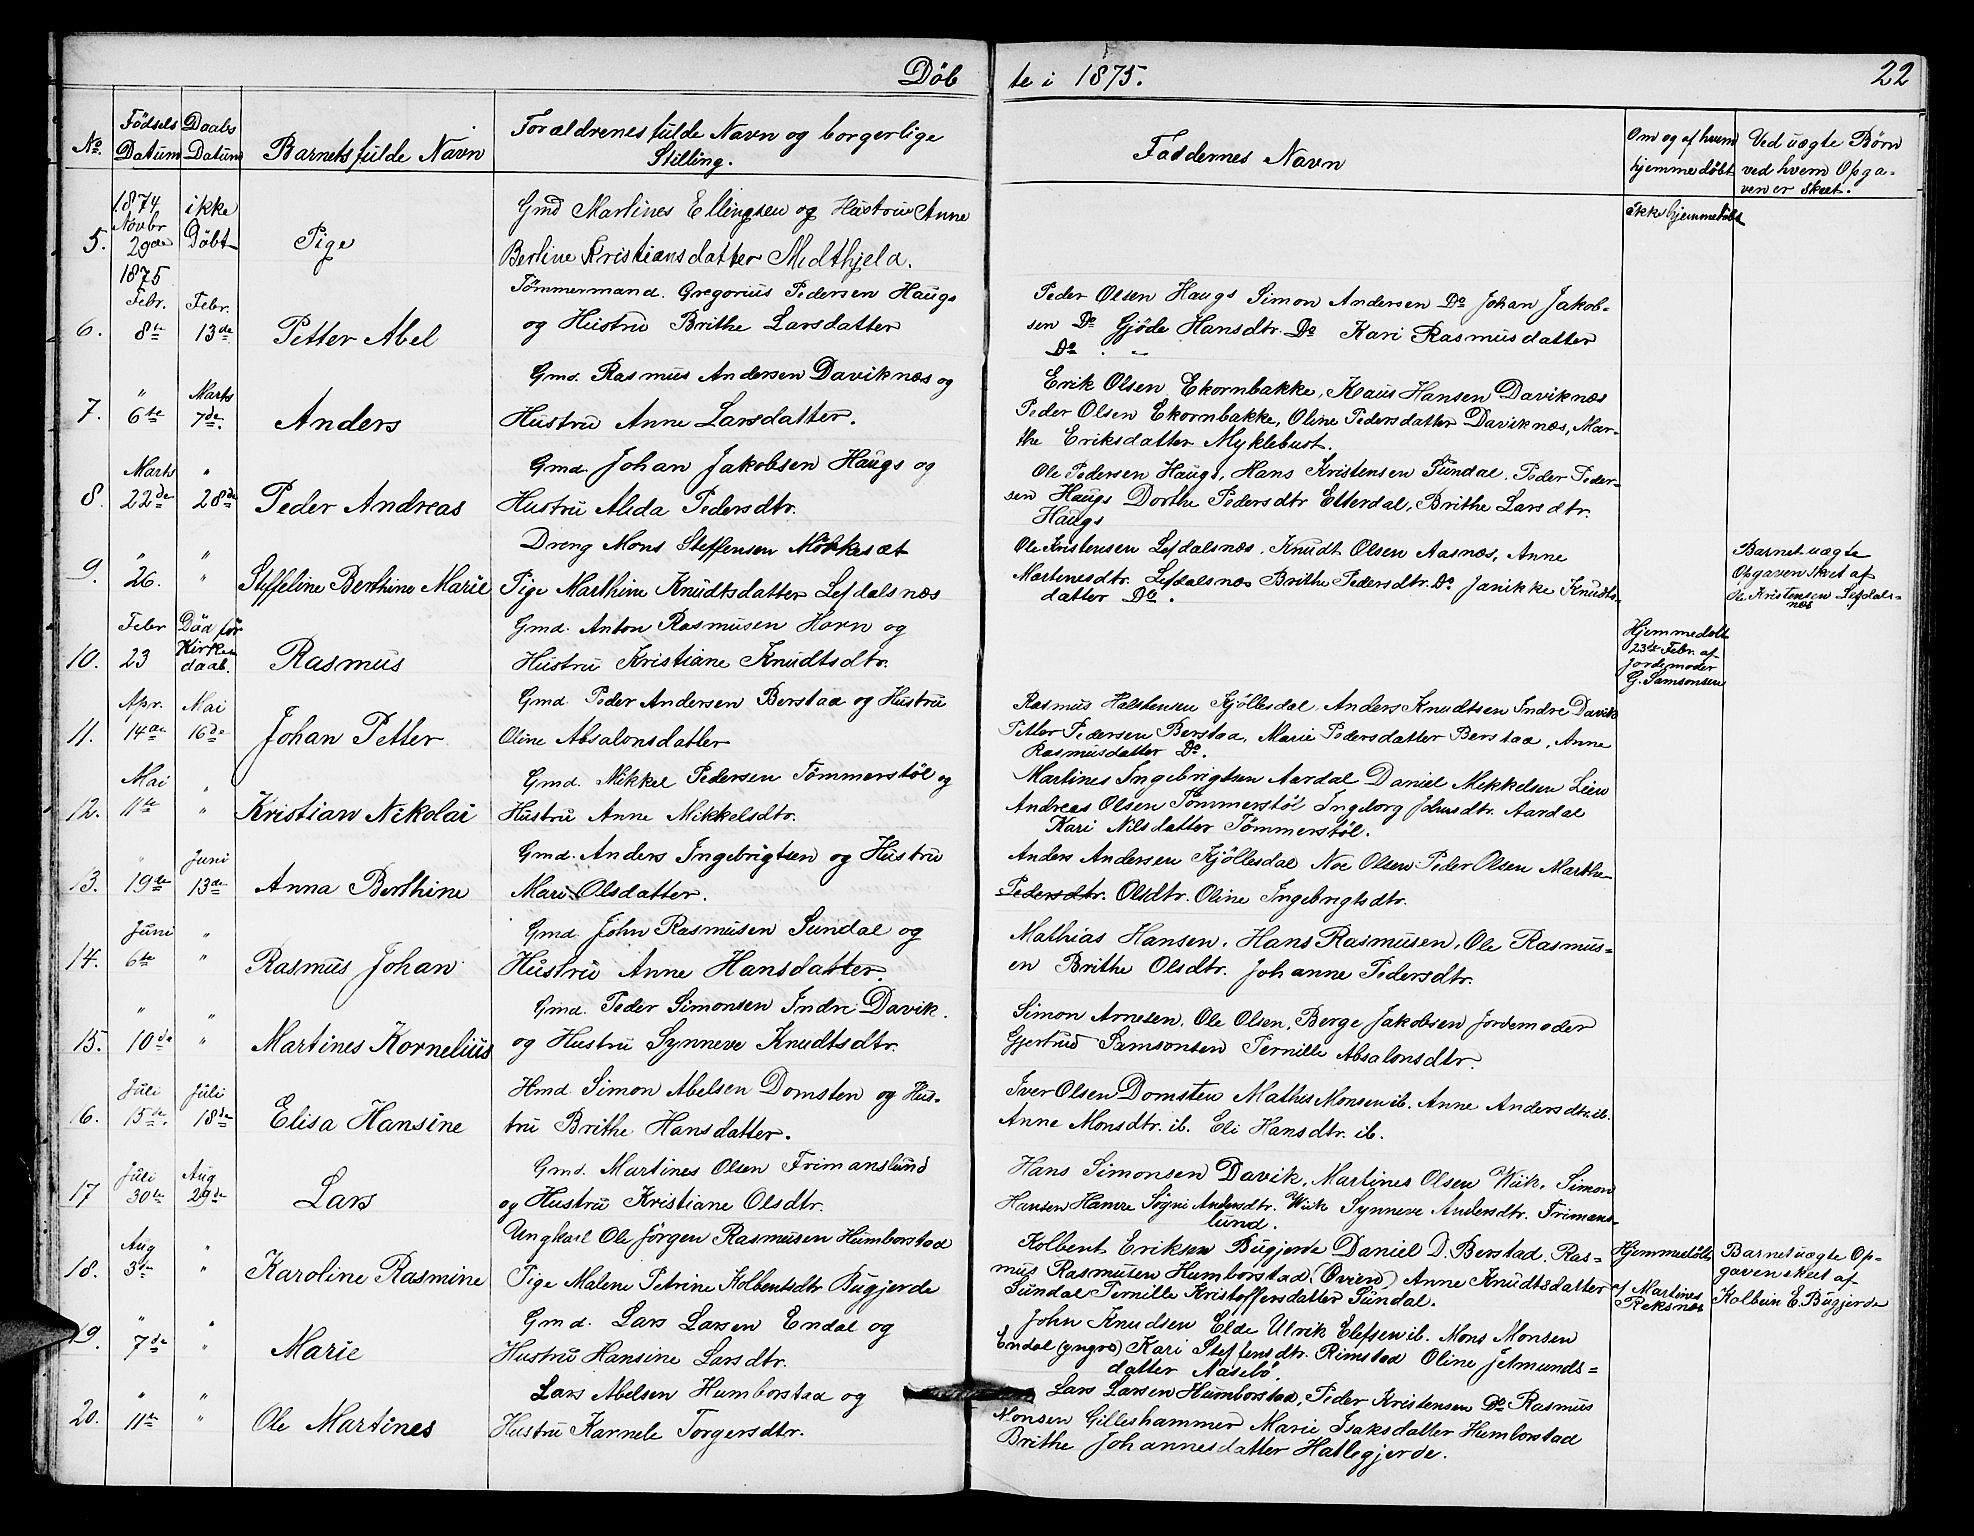 Döb te i 1875. 22
No. Födsels Datum Daabs Datum Barnets fulde Navn Forældrenes fulde Navn og borgerlige Stilling. Faddernes Navn Om og af hvem hjemmedöbt Ved uægte Börn ved hvem Opgaven er skeet.
1874 ikke Gmd Martines Ellingsen og Hustru Anne ikke hjemmedöbt
5. Novbr 29de Döbt Pige Berline Kristiansdatter Midthjeld.
1875
Febr. Febr. Tömmermand. Gregorius Pedersen Haugs Peder Olsen Haugs Simon Andersen Do Johan Jakob-
6. 8de 13de Petter Abel og Hustru Brithe Larsdatter sen Do Gjöde Hansdtr. Do Kari Rasmusdatter
Do
" Marts Gmd. Rasmus Andersen Daviknæs og Erik Olsen Ekornbakke, Klaus Hansen Daviknæs
7. 6te 7de. Anders Hustru Anne Larsdatter. Peder Olsen Ekornbakke, Oline Pedersdatter Daviknæs, Mar-
the Eriksdatter Myklebust.
Marts " Gmd. Johan Jakobsen Haugs og Ole Pedersen Haugs, Hans Kristensen Sundal, Peder Peder-
8. 22de 28de Peder Andreas Hustru Alida Pedersdtr. sen Haugs Dorthe Pedersdtr Etterdal, Brithe Larsdtr.
Haugs
" " Dreng Mons Steffensen Mökkesæt Ole Kristensen Lefdalsnæs, Knudt Olsen Aasnæs, Anne Barnet uægte
9. 26. " Steffeline Berthine Marie Pige Marthine Knudtsdatter Lefdalsnæs Martinesdtr. Lefdalsnæs Brithe Pedersdtr. Do Janikke Knudts- Opgaven skeet af
datter Do. Ole Kristensen Lefdals-
næs
Febr Död för Gmd. Anton Rasmusen Horn og Hjemmedöbt
10. 23 Kirken daab. Rasmus Hustru Kristiane Knudtsdtr. 23de Febr. af
Jordemoder
G. Samsonsen
Apr. Mai Gmd. Peder Andersen Berstad og Hustru Rasmus Halstensen Kjöllesdal, Anders Knudtsen Indre Davik
11. 14de 16de Johan Petter Oline Absalonsdatter Petter Pedersen Berstad, Marie Pedersdatter Berstad, Anne
Rasmusdatter Do.
Mai " Gmd. Mikkel Pedersen Tömmerstöl og Martines Ingebrigtsen Aardal Daniel Mikkelsen Lien
12. 11te " Kristian Nikolai Hustru Anne Mikkelsdtr. Andreas Olsen Tömmerstöl Ingeborg Johnsdtr. Aardal
Kari Nilsdatter Tömmerstöl.
" Juni Gmd. Anders Ingebrigtsen og Hustru Anders Andersen Kjöllesdal Noe Olsen Peder Olsen Marthe
13. 19de 13de Anna Berthine Mari Olsdatter. Pedersdtr. Olsdtr. Oline Ingebrigtsdtr.
Juni " Gmd. John Rasmusen Sundal og Mathias Hansen, Hans Rasmusen, Ole Rasmus-
14. 6te " Rasmus Johan Hustru Anne Hansdatter. en Brithe Olsdtr. Johanne Pedersdtr.
" " Gmd. Peder Simonsen Indre Davik. Simon Arnesen, Ole Olsen, Berge Jakobsen Jordemoder
15. 10de " Martines Kornelius og Hustru Synneve Knudtsdtr. Gjertrud Samsonsen Pernille Absalonsdtr.
Juli Juli Hmd Simon Abelsen Domsten og Hus- Iver Olsen Domsten Mathis Monsen ib. Anne Andersdtr. ib.
16. 15de. 18de Elisa Hansine tru Brithe Hansdatter. Anne Monsdtr. ib. Eli Hansdtr. ib.
Juli Aug Gmd. Martines Olsen Frimanslund Hans Simonsen Davik, Martines Olsen Wiik. Simon
17 30te 29de Lars og Hustru Kristiane Olsdtr. Hansen Hamre Sögni Andersdtr. Wiik Synneve Andersdtr. Frimans-
lund.
Aug " Ungkarl Ole Jörgen Rasmusen Humborstad Kolbent Eriksen Bugjerde Daniel D. Berstad. Ras- Hjemmedöbt Barnet uægte Op-
18. 3de " Karoline Rasmine Pige Malene Petrine Kolbentsdtr Bugjerde mus Rasmusen Humborstad (Övien) Anne Knudtsdatter af Martines gaven skeet af
Sundal Pernille Kristoffersdatter Sundal. Reksnæs Kolbein E. Bugjerde
" " Gmd. Lars Larsen Endal og John Knudsen Elde Ulrik Elefsen ib. Mons Monsen
19. 7de " Marie Hustru Hansine Larsdtr. Endal (yngre) Kari Steffensdtr. Rimstad Oline Jetmunds-
datter Næsebö.
" " Lars Abelsen Humborstad og Lars Larsen Humborstad, Peder Kristensen Do Rasmus
20. 11te " Ole Martines Hustru Karnele Torgersdtr. Monsen Gilleshammer Marie Isaksdatter Humborstad
Brithe Johannesdatter Hatlegjerde.